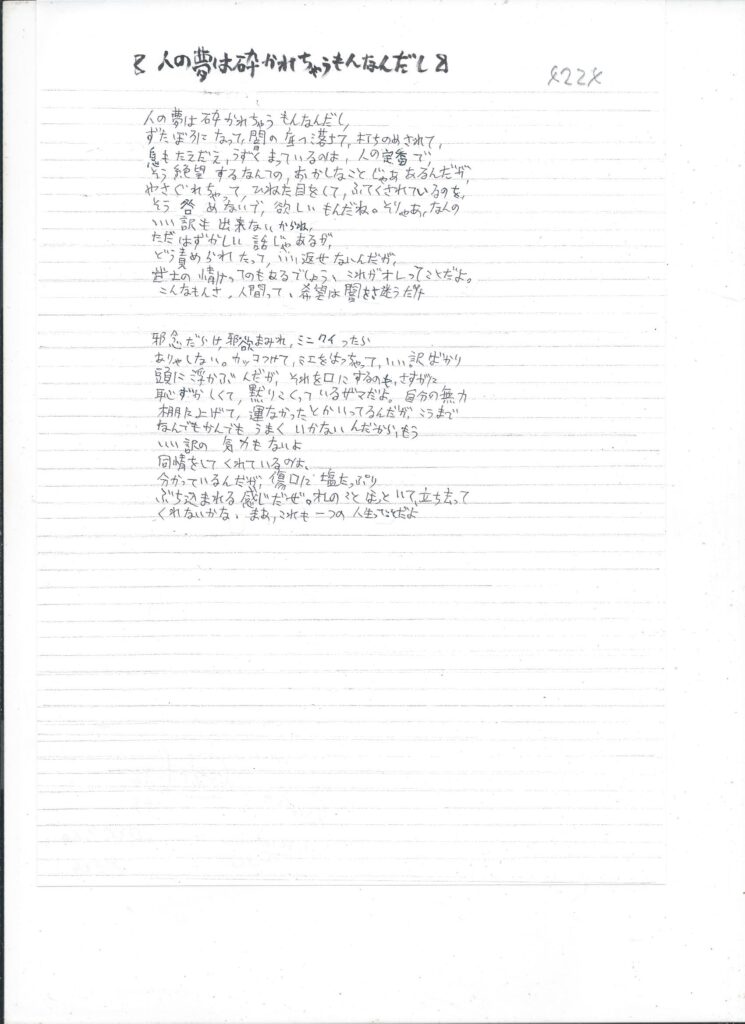 〖 人の夢は砕かれちゃうもんなんだし 〗
人の夢は砕かれちゃうもんなんだし、
ずたぼろになって、闇の 落ちて、打ちのめされて、
息もたえだえ、うずくまっているのは、人の定番で、
そう絶望するなんての、おかしなことじゃああるんだが、
やさぐれちゃって、ひねた目をして、ふてくされているのを、
そう咎めないで、欲しいもんだね。そりゃあ、なんの
いい訳も出来ないからね、
ただはずかしい話じゃあるが、
どう責められたって、いい返せないんだが、
武士の情けってのもあるでしょう、これがオレってことだよ。
こんなもんさ、人間って、希望は闇をさ迷うだけ
邪念だらけ、邪欲まみれ、ミニクイったら
ありゃしない。カッコつけて、ミエをはっちゃって、いい訳ばかり
頭に浮かぶんだが、それを口にするのも、さすがに
恥ずかしくて、黙りこくっているザマだよ。自分の無力
棚に上げて、運なかったとかいってるんだが、こうまで
なんでもかんでもうまくいかないんだから、もう
いい訳の気力もないよ
同情をしてくれているのは、
分かっているんだが、傷口に塩たっぷり
ぶち込まれる感じだぜ。おれのことほっといて、立ち去って
くれないかな、まあ、これも一つの人生ってことだよ